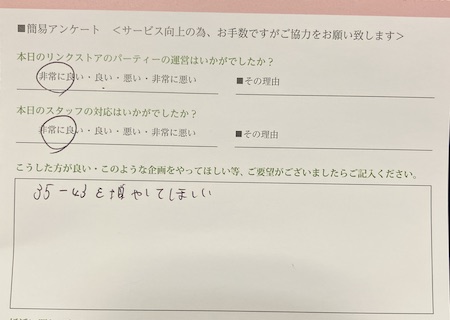 ■簡易アンケート ＜サービス向上の為、お手数ですがご協力をお願い致します＞
本日のリンクストアのパーティーの運営はいかがでしたか？
非常に良い・良い・悪い・非常に悪い ■その理由
本日のスタッフの対応はいかがでしたか？
非常に良い・良い・悪い・非常に悪い ■その理由
こうした方が良い・このような企画をやってほしい等、ご要望がございましたらご記入ください。
35-43を増やしてほしい